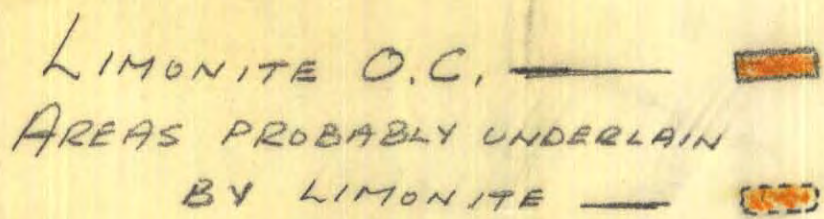 LIMONITE O.C. —
AREAS PROBABLY UNDERLAIN
BY LIMONITE —